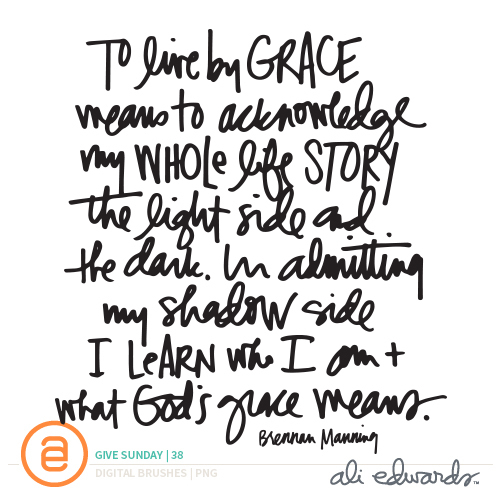 To live by GRACE
means to acknowledge
my WHOLe life STORY
the light side and
the dark. In admitting
my shadow side
I LeARN who I am +
what God's grace means.
Brennan Manning
a
GIVE SUNDAY | 38
DIGITAL BRUSHES | PNG
ali edwards™